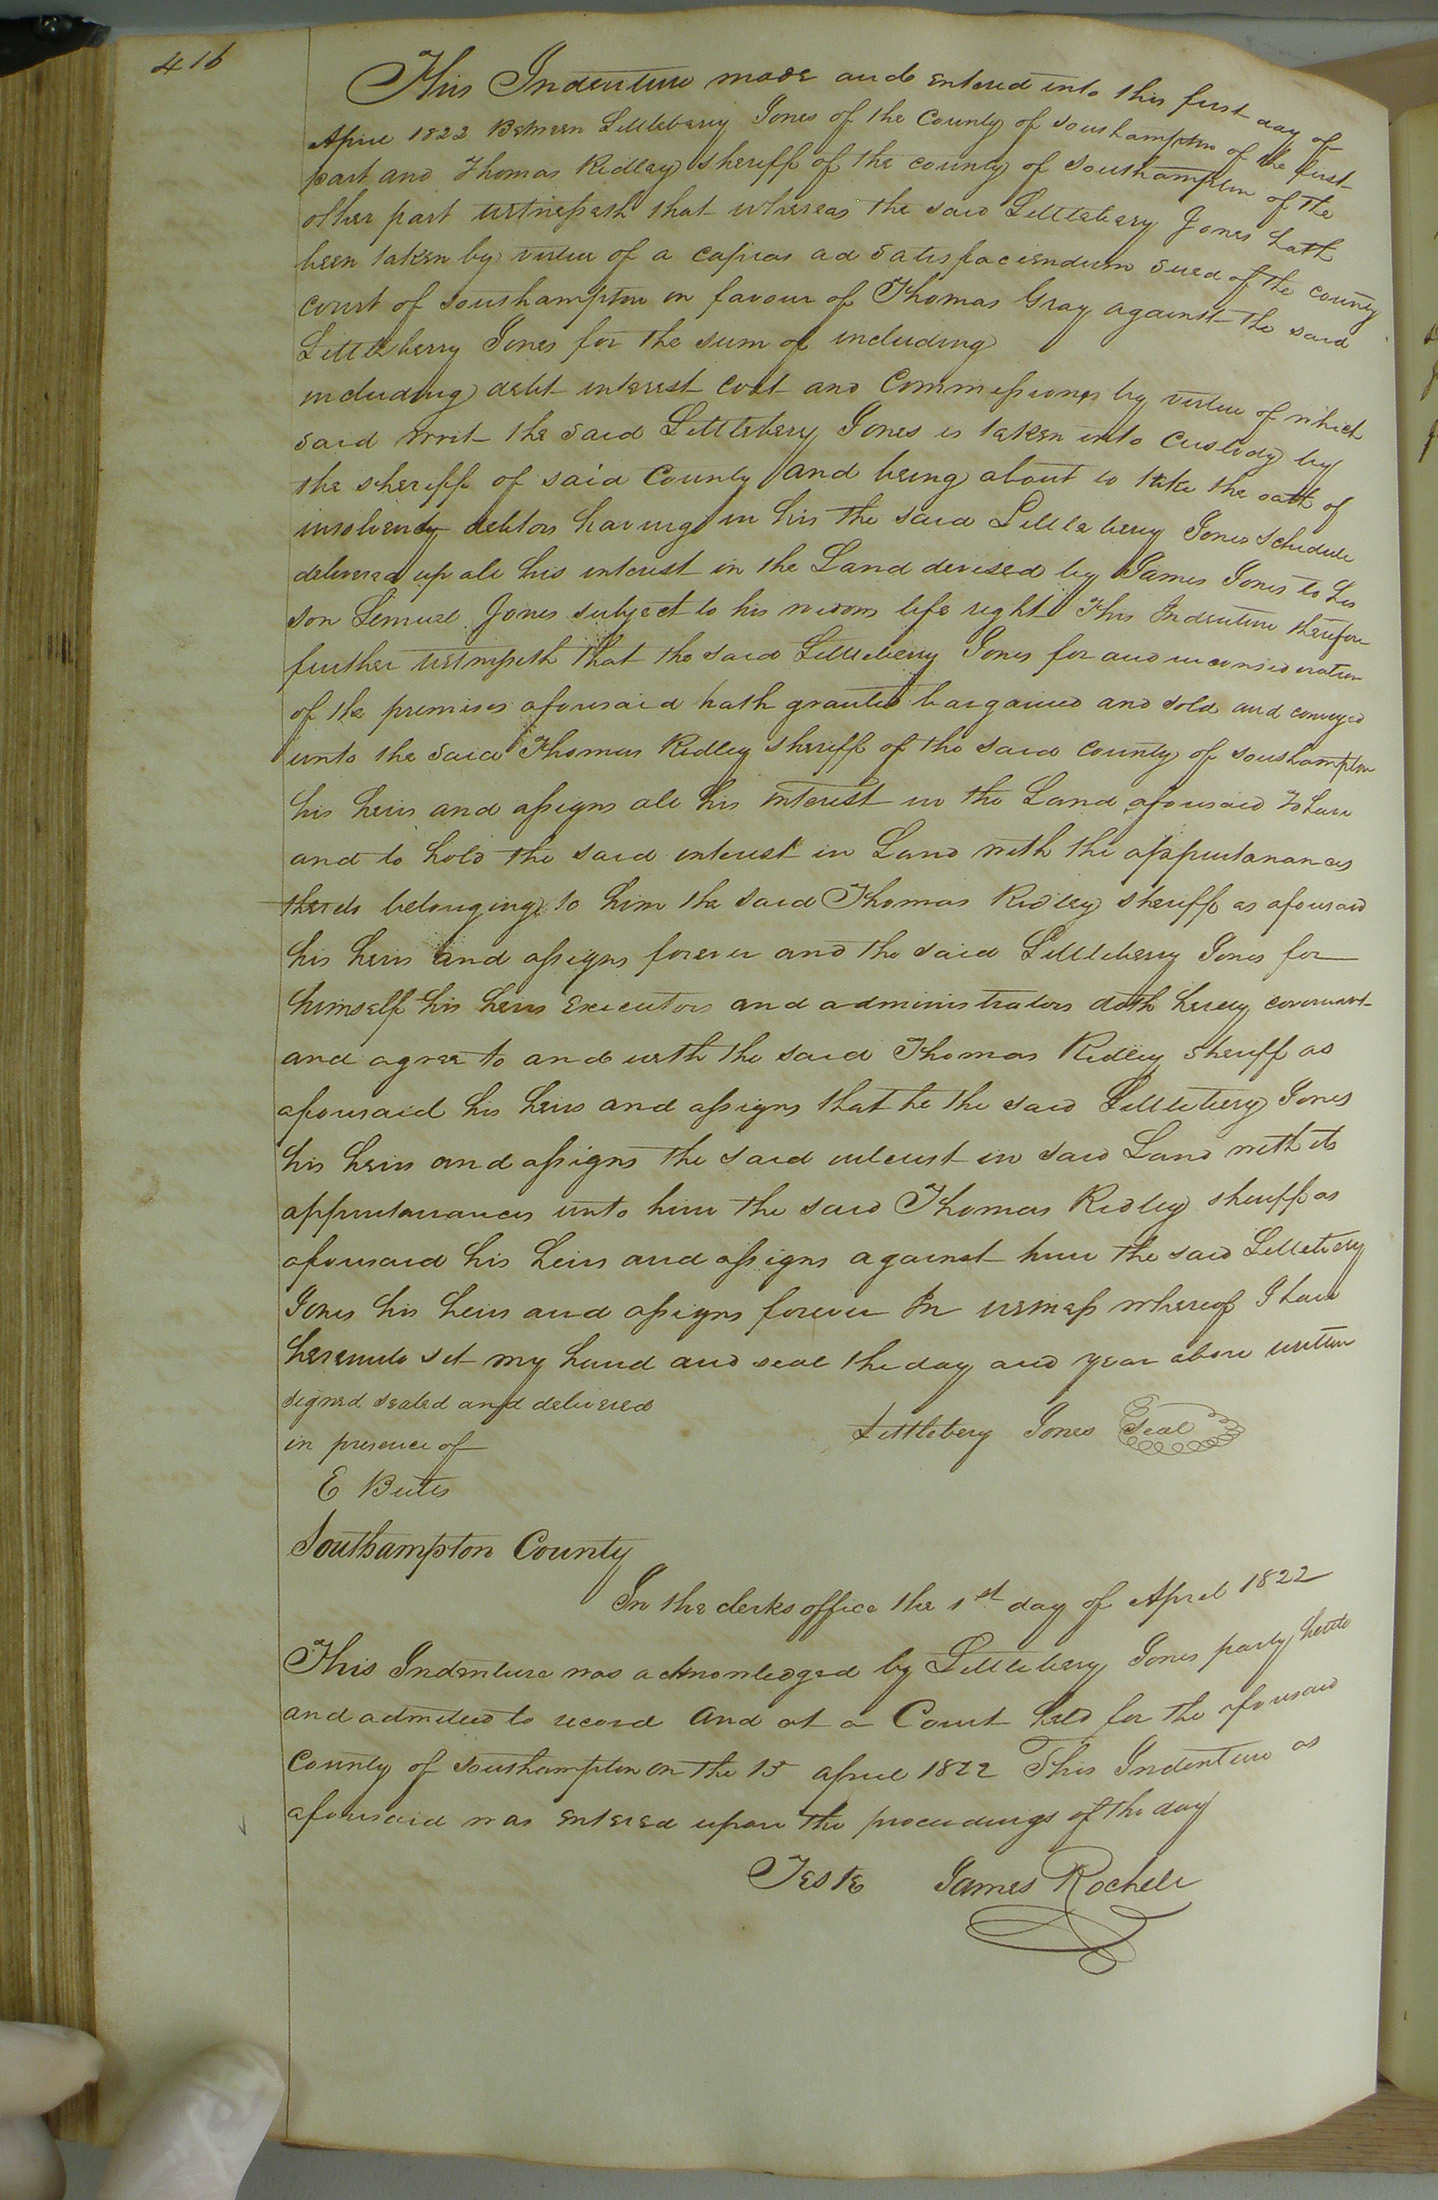 416
This Indenture made and entered into this first day of
April 1822 Between Littleberry Jones of the County of Southampton of the first
part and Thomas Ridley sheriff of the county of Southampton of the
other part witnesseth that whereas the said Littleberry Jones hath
been taken by virtue of a capias ad satisfaciendum sued of the county
court of Southampton in favour of Thomas Gray against the said
Littleberry Jones for the sum of including
including debt interest cost and Commissions by virtue of which
said writ the said Littlebery Jones is taken into Custody by
the sheriff of said County and being about to take the oath of
insolvency debtors having in his the said Littlebery Jones schedule
delivered up all his interest in the Land devised by James Jones to his
son Lemuel Jones subject to his widows life right This Indenture therefore
further witnesseth that the said Littleberry Jones for and in consideration
of the premises aforesaid hath granted bargained and sold and conveyed
unto the said Thomas Ridley sheriff of the said county of Southampton
his heirs and assigns all his interest in the Land aforesaid To have
and to hold the said interest in Land with the appurtanances
thereto belonging to him the said Thomas Ridley sheriff as aforesaid
his heirs and assigns forever and the said Littleberry Jones for
himself his heirs Executors and administrators doth hereby covenant
and agree to and with the said Thomas Ridley Sheriff as
aforesaid his heirs and assigns that he the said Littlebery Jones
his heirs and assigns the said interest in said Land with its
appurtanances unto him the said Thomas Ridley sheriff as
aforesaid his heirs and assigns against him the said Littlebery
Jones his heirs and assigns forever In witness whereof I have
hereunto set my hand and seal the day and year above written
signed sealed and delivered
in presence of
Littlebery Jones Seal
E Butts
Southampton County
In the clerks office the 1st day of April 1822
This Indenture was acknowledged by Littlebery Jones party hereto
and admitted to record And at a Court held for the aforesaid
County of Southampton on the 15 april 1822 This Indenture as
aforesaid was entered upon the proceedings of the day
Teste James Rochelle